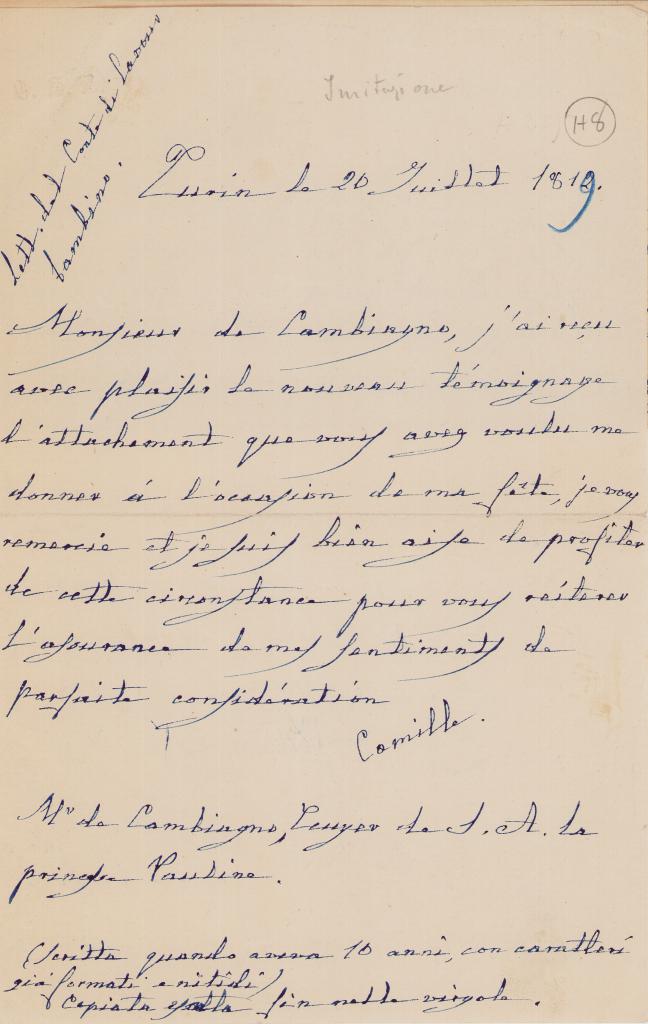 Imitazione
H8
Lett. del Conte di Cavour
bambino.
Turin le 20 Juillet 1819.
Monsieur de Cambiagno, j'ai reçu
avec plaisir le nouveau témoignage
d'attachement que vous avez voulu me
donner à l'occasion de ma fête, je vous
remercie et je suis bien aise de profiter
de cette circonstance pour vous réiterer
l'assurance de mes sentiments de
parfaite considération
Camille.
Mr de Cambiagno, Ecuyer de S. A. la
princesse Pauline.
(Scritta quando aveva 10 anni, con caratteri
già formati e nitidi)
Copiata esatta fin nelle virgole.